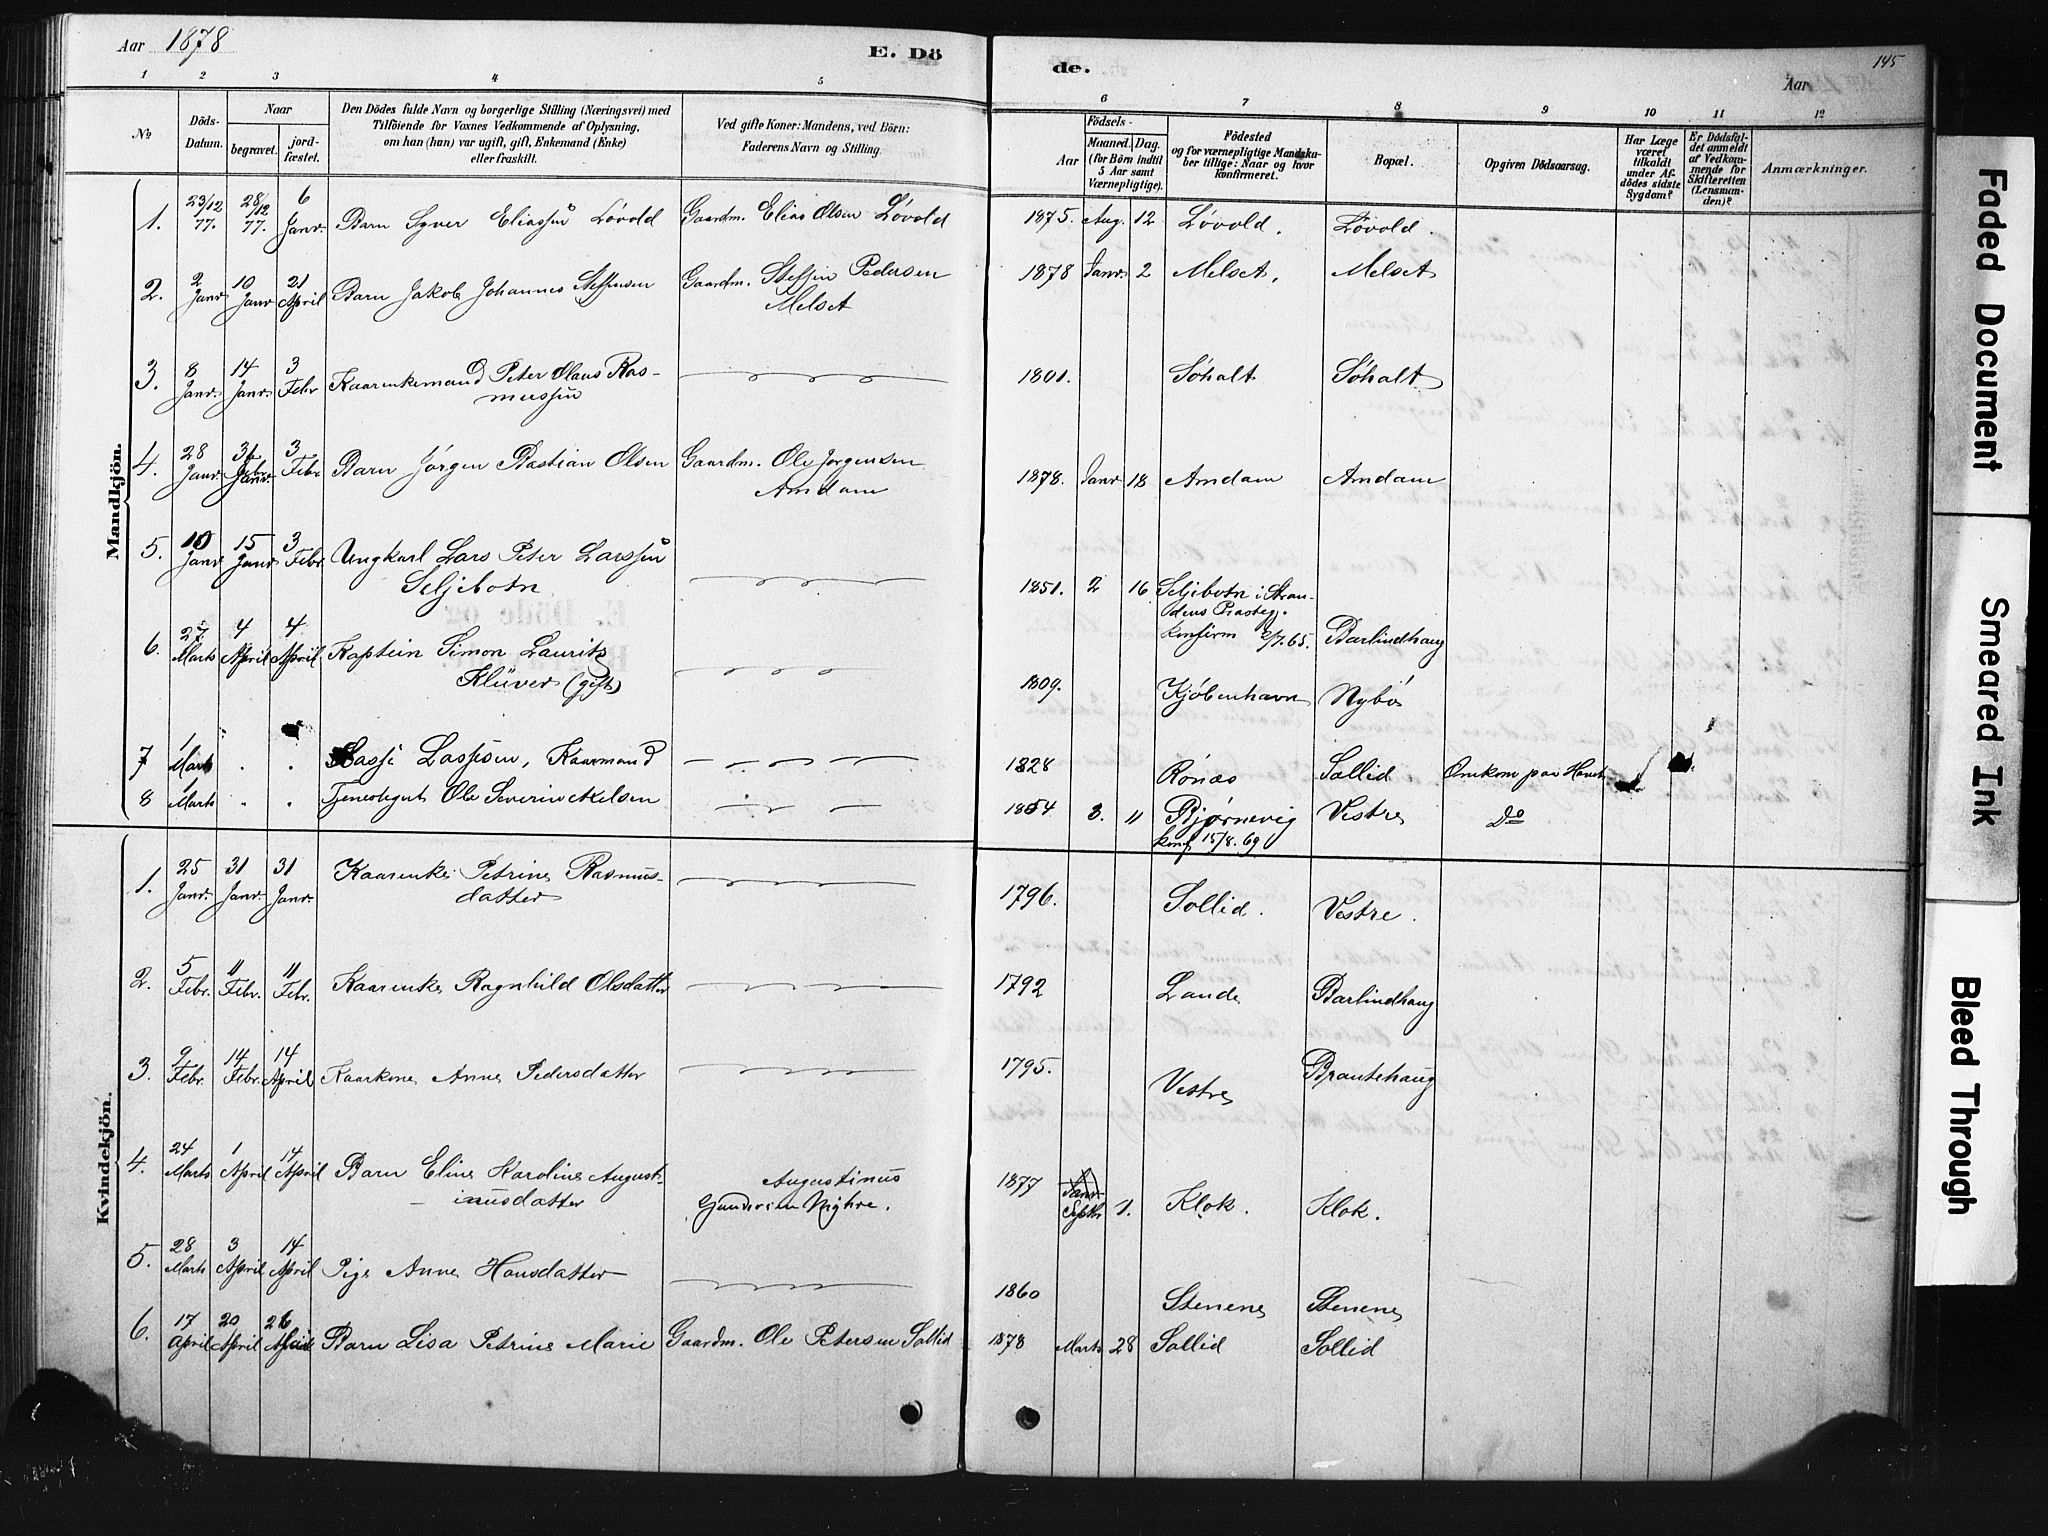 Aar 1878
E. Dö
de.
145
Aar
1 2 3 4 5 6 7 8 9 10 11 12
No
Döds-Datum.
Naar
begravet.
jord-fæstet.
Den Dödes fulde Navn og borgerlige Stilling (Næringsvei) med
Tilföiende for Voxnes Vedkommende af Oplysning,
om han (hun) var ugift, gift, Enkemand (Enke)
eller fraskilt.
Ved gifte Koner: Mandens, ved Börn:
Faderens Navn og Stilling.
Födsels-
Aar
Maaned. Dag.
(for Börn indtil
5 Aar samt
Værnepligtige).
Födested
og for værnepligtige Mandska-
ber tillige: Naar og hvor
konfirmeret.
Bopæl.
Opgiven Dödsaarsag.
Har Læge
været
tilkaldt
under Af-
dödes sidste
Sygdom?
Er Dödsfal-
det anmeldt
af Vedkom-
mende for
Skifteretten
(Lensman-
den)?
Anmærkninger.
Mandkjön.
1. 23/12 77. 28/12 77. 6 Janr. Barn Syver Eliassen Lövold Gaardm. Elias Olsen Lövold 1875. Aug. 12 Lövold. Lövold.
2. 2 Janr 10 Janr 21 April Barn Jakob Johannes Steffensen Gaardm. Steffen Pedersen
Melset 1878 Janr. 2 Melset. Melset
3. 8 Janr. 14 Janr. 3 Febr Kaarenkemand Peter Olaus Ras-
mussen 1801. Söholt Söholt
4. 28 Janr. 31 Janr. 3 Febr. Barn Jörgen Bastian Olsen Gaardm. Ole Jörgensen
Amdam 1878. Janr 18 Amdam Amdam
5. 10 Janr 15 Janr 3 Febr. Ungkarl Lars Peter Larssen
Seljebotn 1851. 2 16 Seljebotn i Stran-
dens Præsteg.
konfirm 2/7.65. Barlindhaug
6. 27 Marts 4 April 4 April Kaptein Simon Lauritz
Klüver (gift) 1809. Kjöbenhavn Nybö
7 1 Marts . . Lasse Lassesen, Kaarmand 1828 Rönæs Sollid Omkom paa Havet
8 Marts " . Tjenestegut Ole Severin Axelsen 1854 3. 11 Bjørnevig
konf 15/8.69 Vestre Do
Kvindekjön.
1. 25 Janr. 31 Janr. 31 Janr. Kaarenke Petrine Rasmus-
datter 1796. Sollid. Vestre.
2. 5 Febr. 11 Febr. 11 Febr. Kaarenke Ragnhild Olsdatter 1792 Lande Barlindhaug
3. 9 Febr. 14 Febr. 14 April Kaarkone Anne Pedersdatter 1795. Vestre Brautehaug
4. 24 Marts 1 April 14 April Barn Eline Karoline August-
inusdatter Augustinus
1877 Septbr 1. Klok. Klok.
5. 28 Marts 3 April 14 April Pige Anne Hansdatter 1860 Stenene Stenene
6. 17 April 20 April 26 Barn Lisa Petrine Marie Gaardm. Ole Petersen Sollid 1878 Marts 28 Sollid Sollid
Faded Document
Smeared Ink
Bleed Through